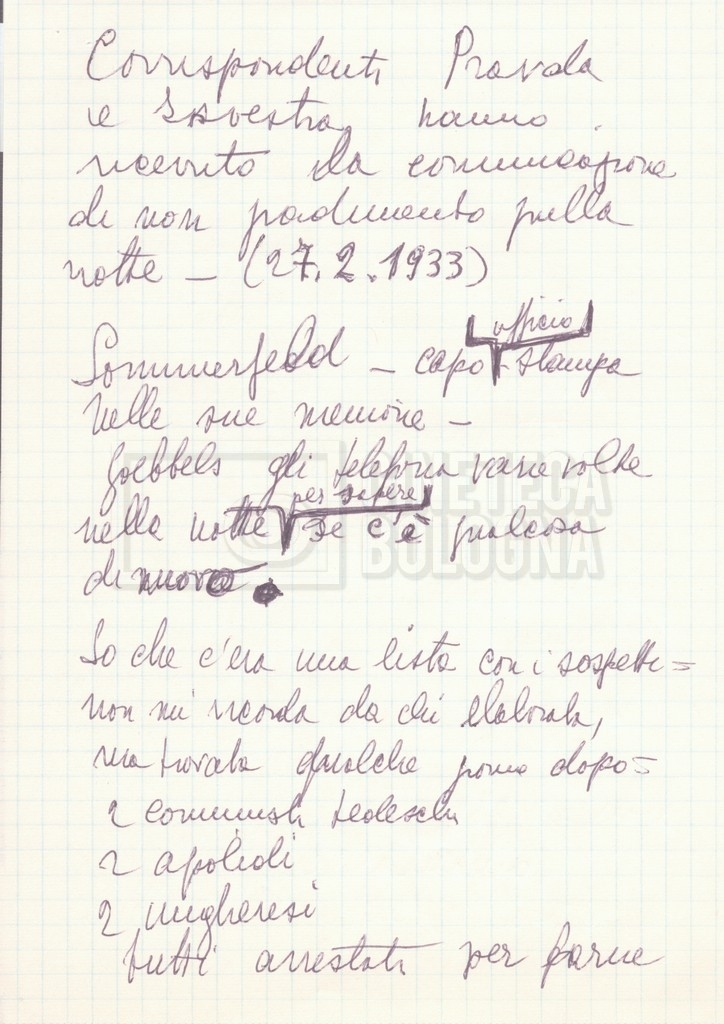 Corrispondenti Pravda
e Isvestra hanno
ricevuto la comunicazione
di non gradimento quella
notte – (27.2.1933)
Sommerfeld – capo ufficio stampa
nelle sue memorie –
Goebbels gli telefona varie volte
nella notte per sapere se c'è qualcosa
di nuovo.
So che c'era una lista con i sospetti =
non mi ricordo da chi elaborata,
ma trovata qualche giorno dopo =
2 comunisti tedeschi
2 apolidi
2 ungheresi
tutti arrestati per farne
CINETECA
BOLOGNA